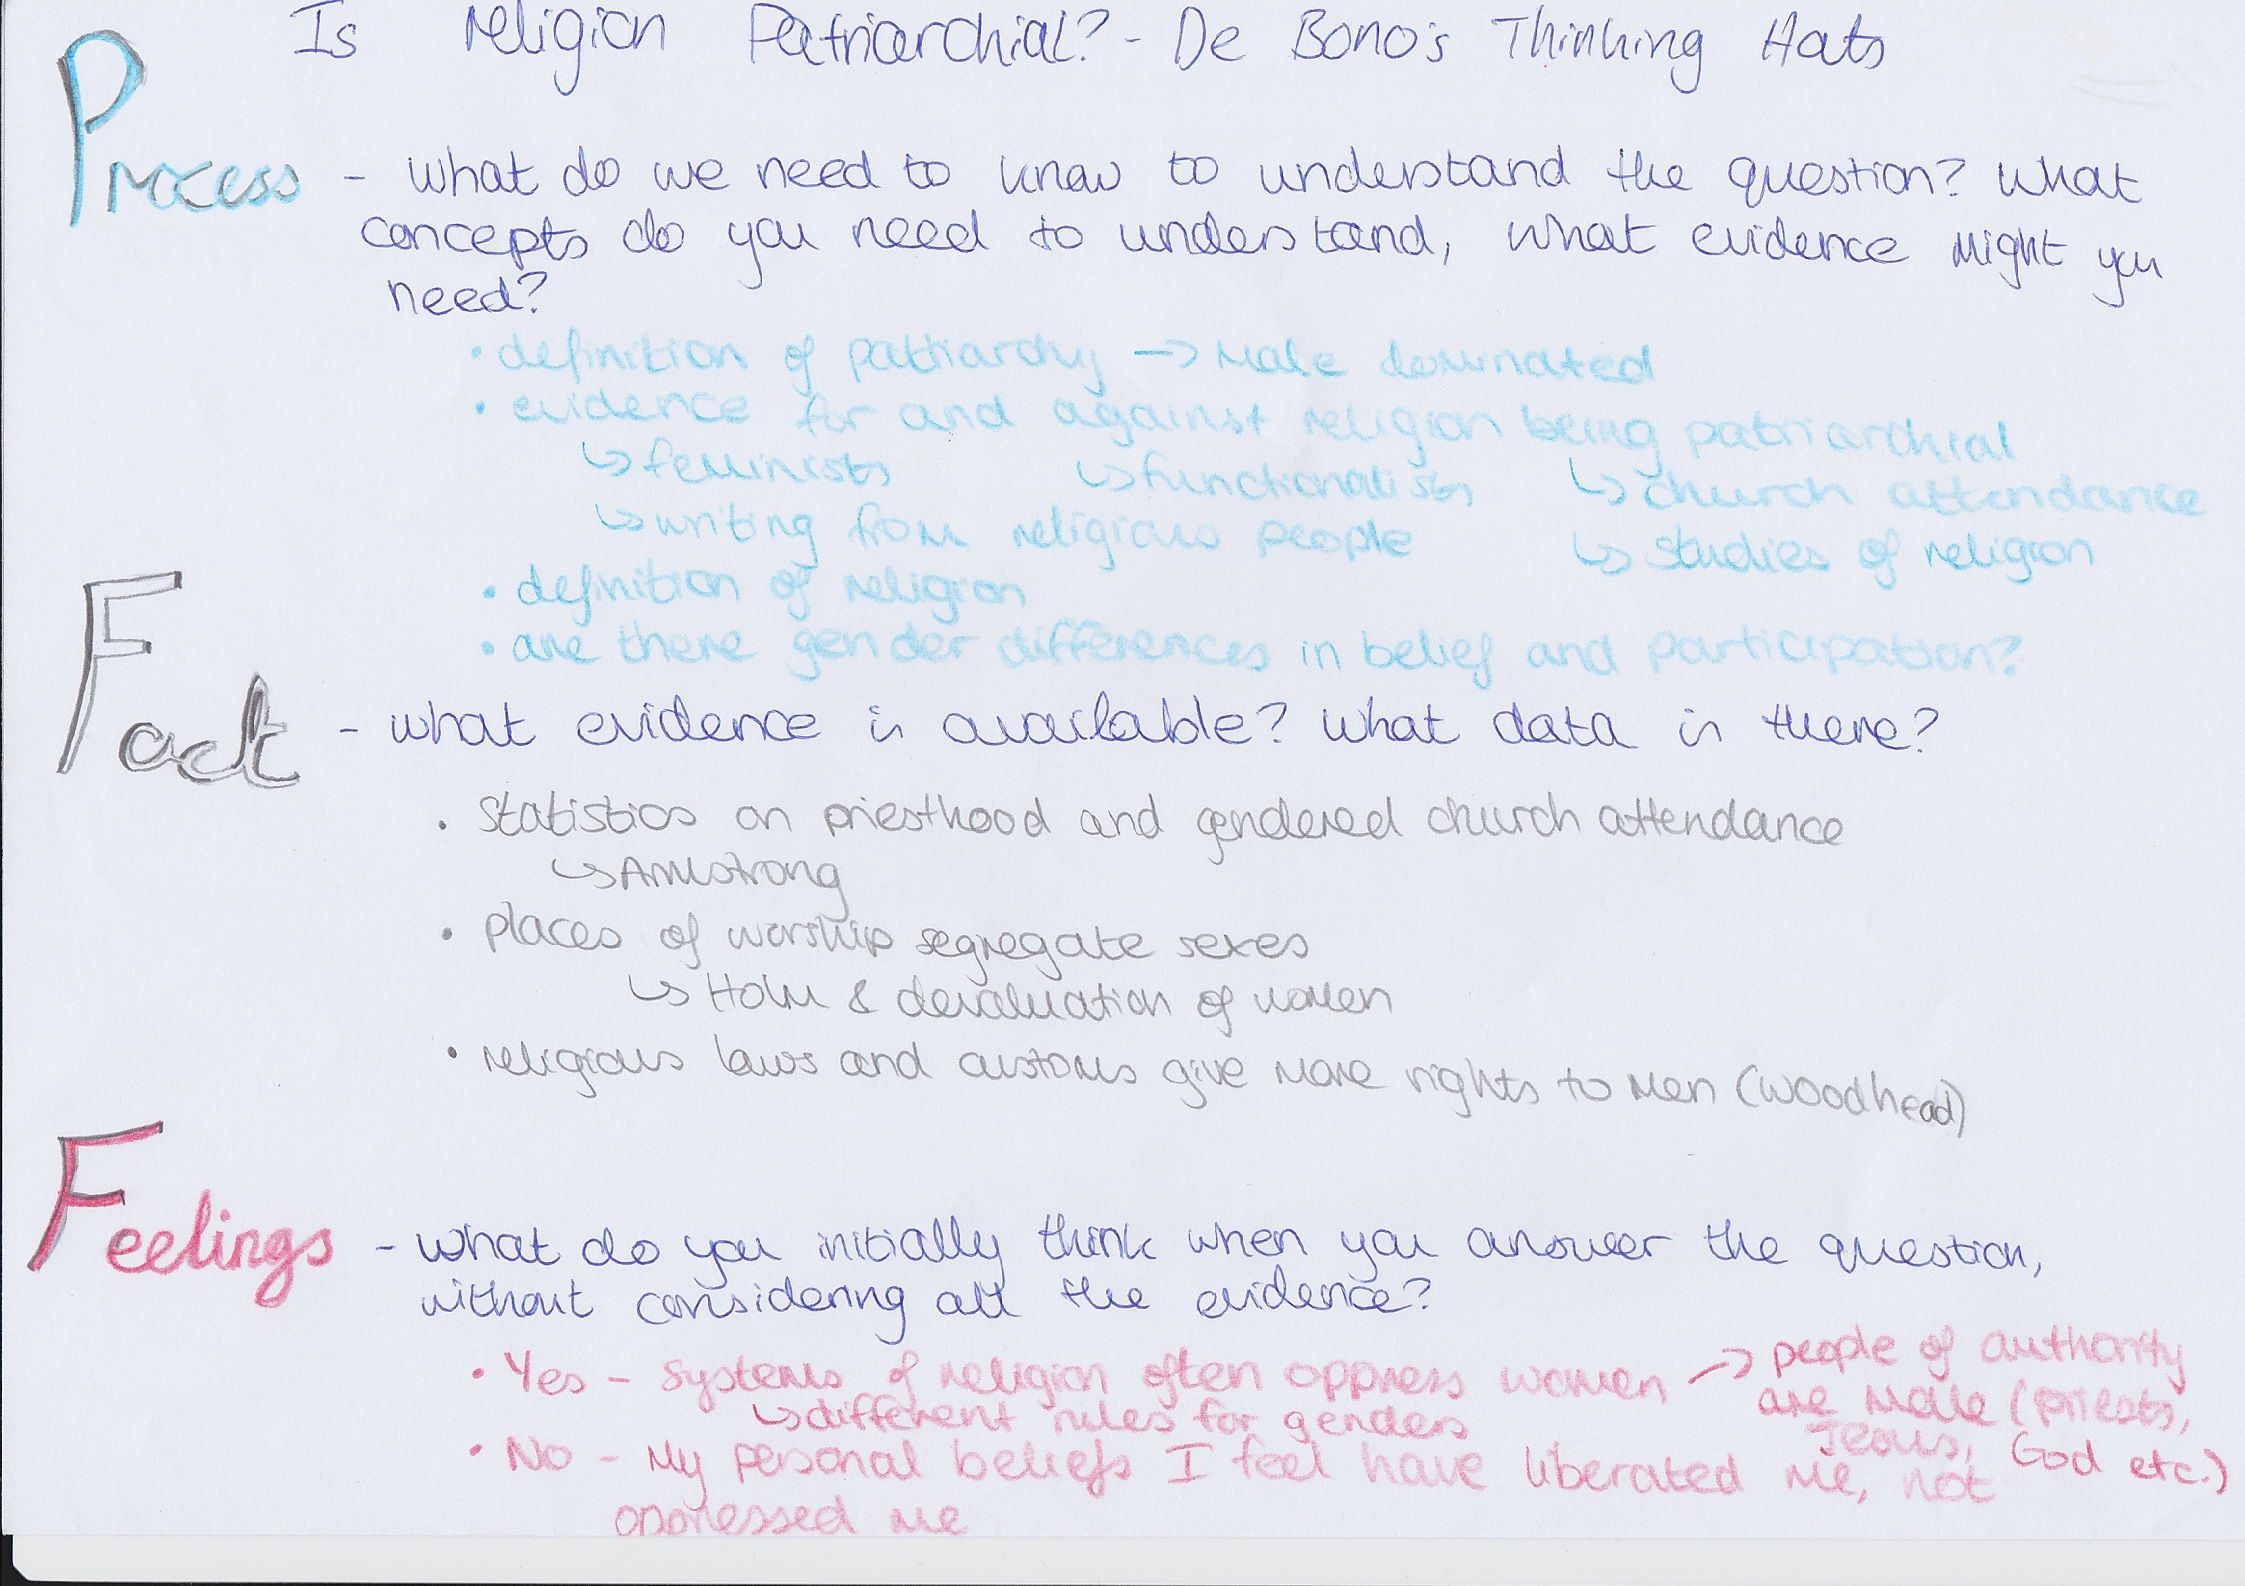 Is religion Patriarchial? - De Bono's Thinking Hats
Process - What do we need to know to understand the question? What
concepts do you need to understand, what evidence might you
need?
• definition of patriarchy → Male dominated
• evidence for and against religion being patriarchial
↳ feminists ↳ functionalists ↳ church attendance
↳ writing from religious people ↳ studies of religion
• definition of religion
• are there gender differences in belief and participation?
Fact - what evidence is available? What data is there?
• Statistics on priesthood and gendered church attendance
↳ Armstrong
• places of worship segregate sexes
↳ Holm & devaluation of women
• religious laws and customs give more rights to men (Woodhead)
Feelings - What do you initially think when you answer the question,
without considering all the evidence?
• Yes - systems of religion often oppress women → people of authority
are male (priests,
Jesus, God etc.)
↳ different rules for genders
• No - My personal beliefs I feel have liberated me, not
oppressed me